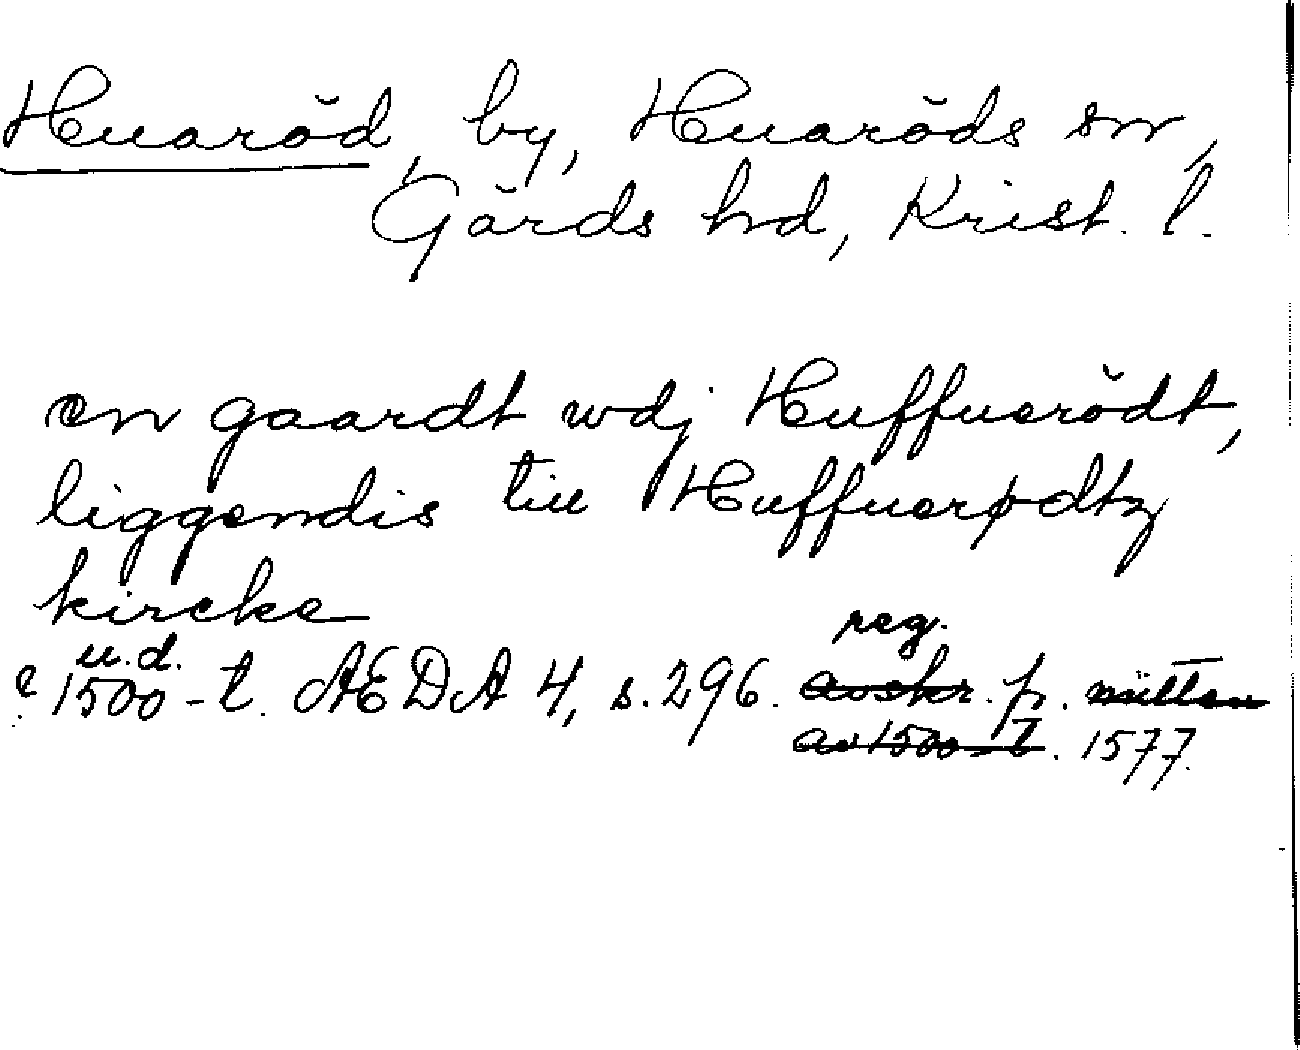 Huaröd, by, Huaröds sn,
Gärds hd, Krist. l.
en gaardt wdj Huffuerödt,
liggendis till Huffuerødtz
kircke
u.d. reg.
1500-t. AEDA 4, s. 296. avskr. p. mitten
av 1500-t. 1577.